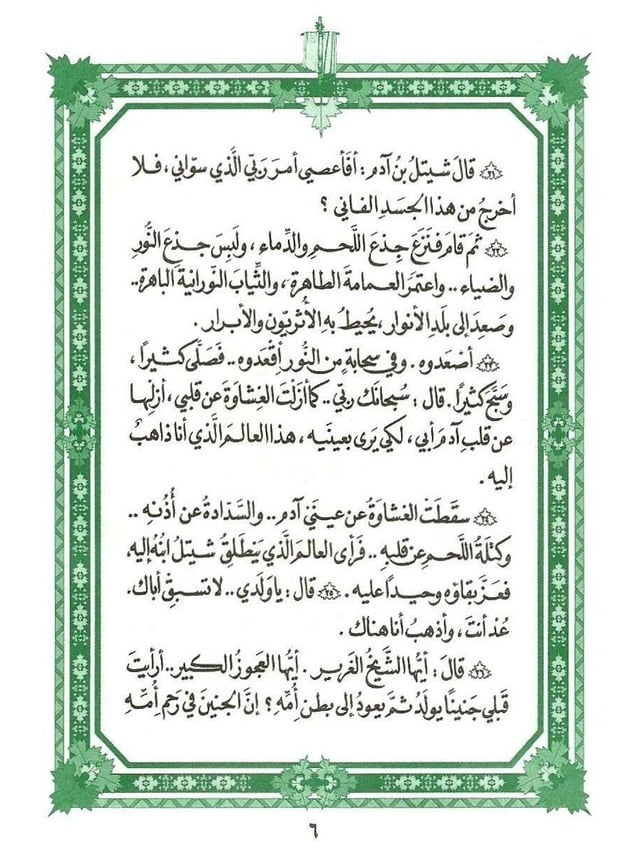 ٢١ قالَ شيتلُ بنُ آدم : أفأعصي أمرَ ربّي الَّذي سوّاني ، فلا
أخرجُ من هذا الجسَدِ الفاني ؟
٢٢ ثم قامَ فنزعَ جِذعَ اللَّحمِ والدِّماءِ ، ولَبِسَ جذعَ النُّورِ
والضياء .. واعتمرَ العمامةَ الطاهرة ، والثِّيابَ النّورانيةَ الباهرة ..
وصَعِدَ إلى بلَدِ الأنوار ، يُحيطُ بهِ الأُثريّون والأبرار .
٢٣ أصْعَدوه . وفي سحابةٍ من النُّور أقْعدوه .. فَصَلَّى كثيرًا ،
وسَبَّحَ كثيرًا . قال : سُبحانَك ربّي .. كما أزلْتَ الغِشاوَةَ عن قلبي ، أزلْها
عن قلبِ آدمَ أبي ، لكي يَرى بعينَيه ، هذا العالمَ الَّذي أنا ذاهبٌ
إليه .
٢٤ سقَطَتْ الغشاوَةُ عن عينَيْ آدم .. والسّدّادةُ عن أُذُنه ..
وكتْلَةُ اللَّحمِ عن قلبهِ .. فرأى العالمَ الَّذي يَنطلقُ شيتلُ ابنُهُ إليه،
فعَزَّ بقاؤه وحيدًا عليه . ٢٥ قال : يا ولَدي .. لا تَسبقْ أباك .
عُدْ أنتَ ، وأذهبُ أنا هناك .
٢٦ قالَ : أيُّها الشَّيخُ الغرير . أيُّها العجوزُ الكبير .. أرأيتَ
قبلي جَنينًا يولَدُ ثمَّ يعودُ إلى بطنِ أُمِّهِ ؟ إنَّ الجنينَ في رَحمِ أُمِّهِ
٦